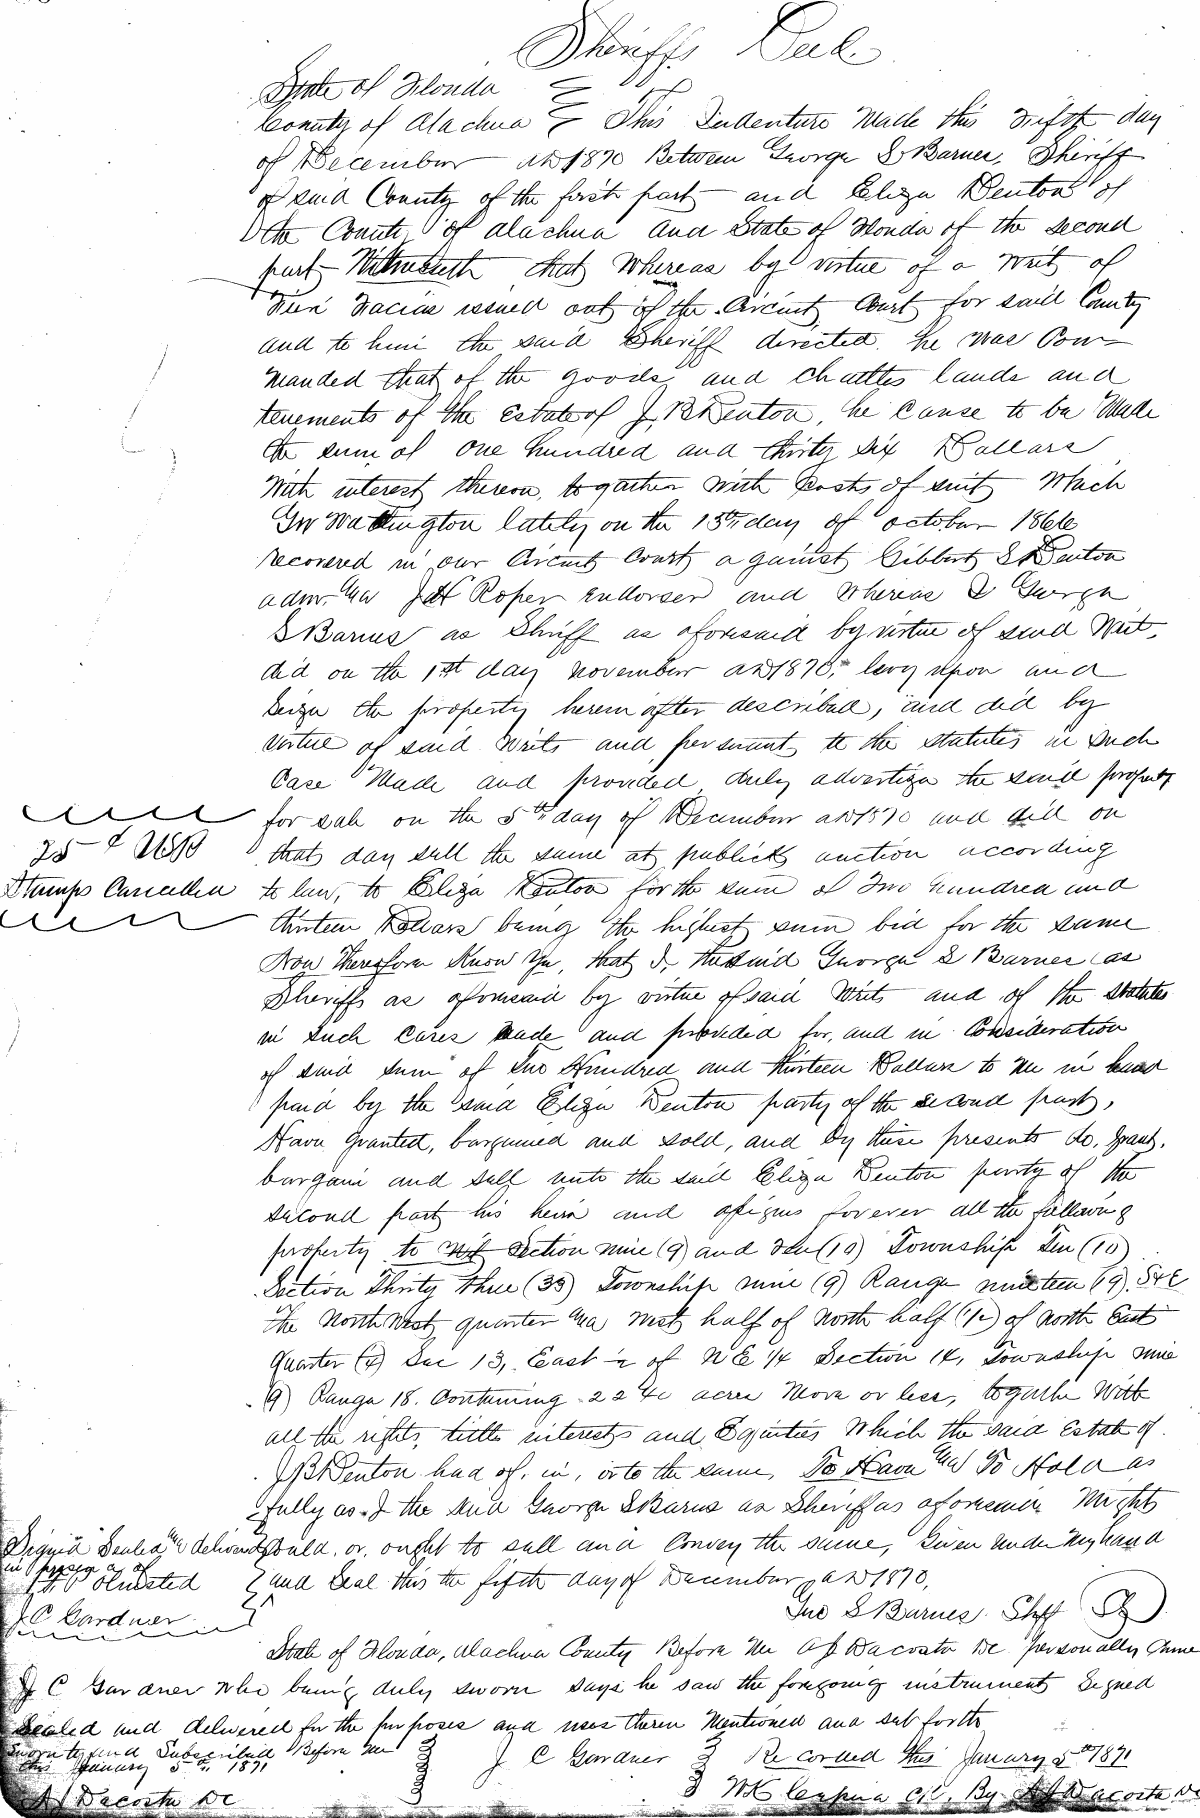 Sheriffs Deed
State of Florida
County of Alachua This Indenture Made this Fifth day
of December AD 1870 Between George S Barnes, Sheriff
of said County of the first part and Eliza Denton of
the County of Alachua and State of Florida of the second
part Witnesseth that Whereas by virtue of a Writ of
Fieri Facias issued out of the Circuit Court for said County
and to him the said Sheriff directed he was Com-
manded that of the goods and chattles lands and
tenements of the Estate of J B Denton, he cause to be Made
the sum of one hundred and thirty six Dollars
With interest thereon, together with Costs of suit Which
lately on the 13th day of October 1866
recovered in our Circuit Court against Gibbert S Denton
admr. and J H Roper Endorser and Whereas I George
S Barnes as Shriff as aforesaid by virtue of said Writ,
did on the 1st day November AD 1870, levy upon and
Seize the property herein after described, and did by
virtue of said Writs and persuant to the statutes in Such
Case Made and provided duly advertize the said property
for sale on the 5th day of December AD 1870 and did on
25 cts USIR
that day sell the same at publick auction according
Stamps Cancelled
to law, to Eliza Denton for the sum of Two Hundred and
thirteen Dollars being the highest sum bid for the same
Now Therefore Know Ye, that I, the said George S Barnes as
Sheriffs as aforesaid by virtue of said Writs and of the Statutes
in Such Cases Made and provided for, and in Consideration
of said sum of Two Hundred and thirteen Dollars to Me in hand
paid by the said Eliza Denton party of the second part,
Have granted, bargained and sold, and by these presents do, grant,
bargain and sell unto the said Eliza Denton party of the
second part his heirs and assigns forever all the following
property to Wit Section nine (9) and Ten (10) Township Ten (10)
Section Thirty Three (33) Township nine (9) Range nineteen (19). S&E
The North West quarter and West half of North half (1/2) of North East
Quarter (4) Sec 13, East 1/2 of NE 1/4 Section 14, Township nine
(9) Range 18. Containing 2240 acres More or less, togathe With
all the rights, title interests and Equities Which the said Estate of
J B Denton had of, in, or to the same, To Have and To Hold as
fully as I the said George S Barnes as Sheriff as aforesaid Might
Signed Sealed and delivered
Could, or, ought to sell and Convey the same, Given under My hand
in presence of
Olmsted
and Seal this the fifth day of December AD 1870,
J C Gardner
Geo S Barnes Shff
State of Florida, Alachua County Before Me A J Dacosta DC personally Came
J C Gardner who being duly sworn says he saw the foregoing instrument Signed
Sealed and delivered for the purposes and uses therein Mentioned and set forth
Sworn to and Subscribed Before Me
this January 5th, 1871
J C Gardner
Recorded this January 5th 1871
A J Dacosta DC
By A J Dacosta DC